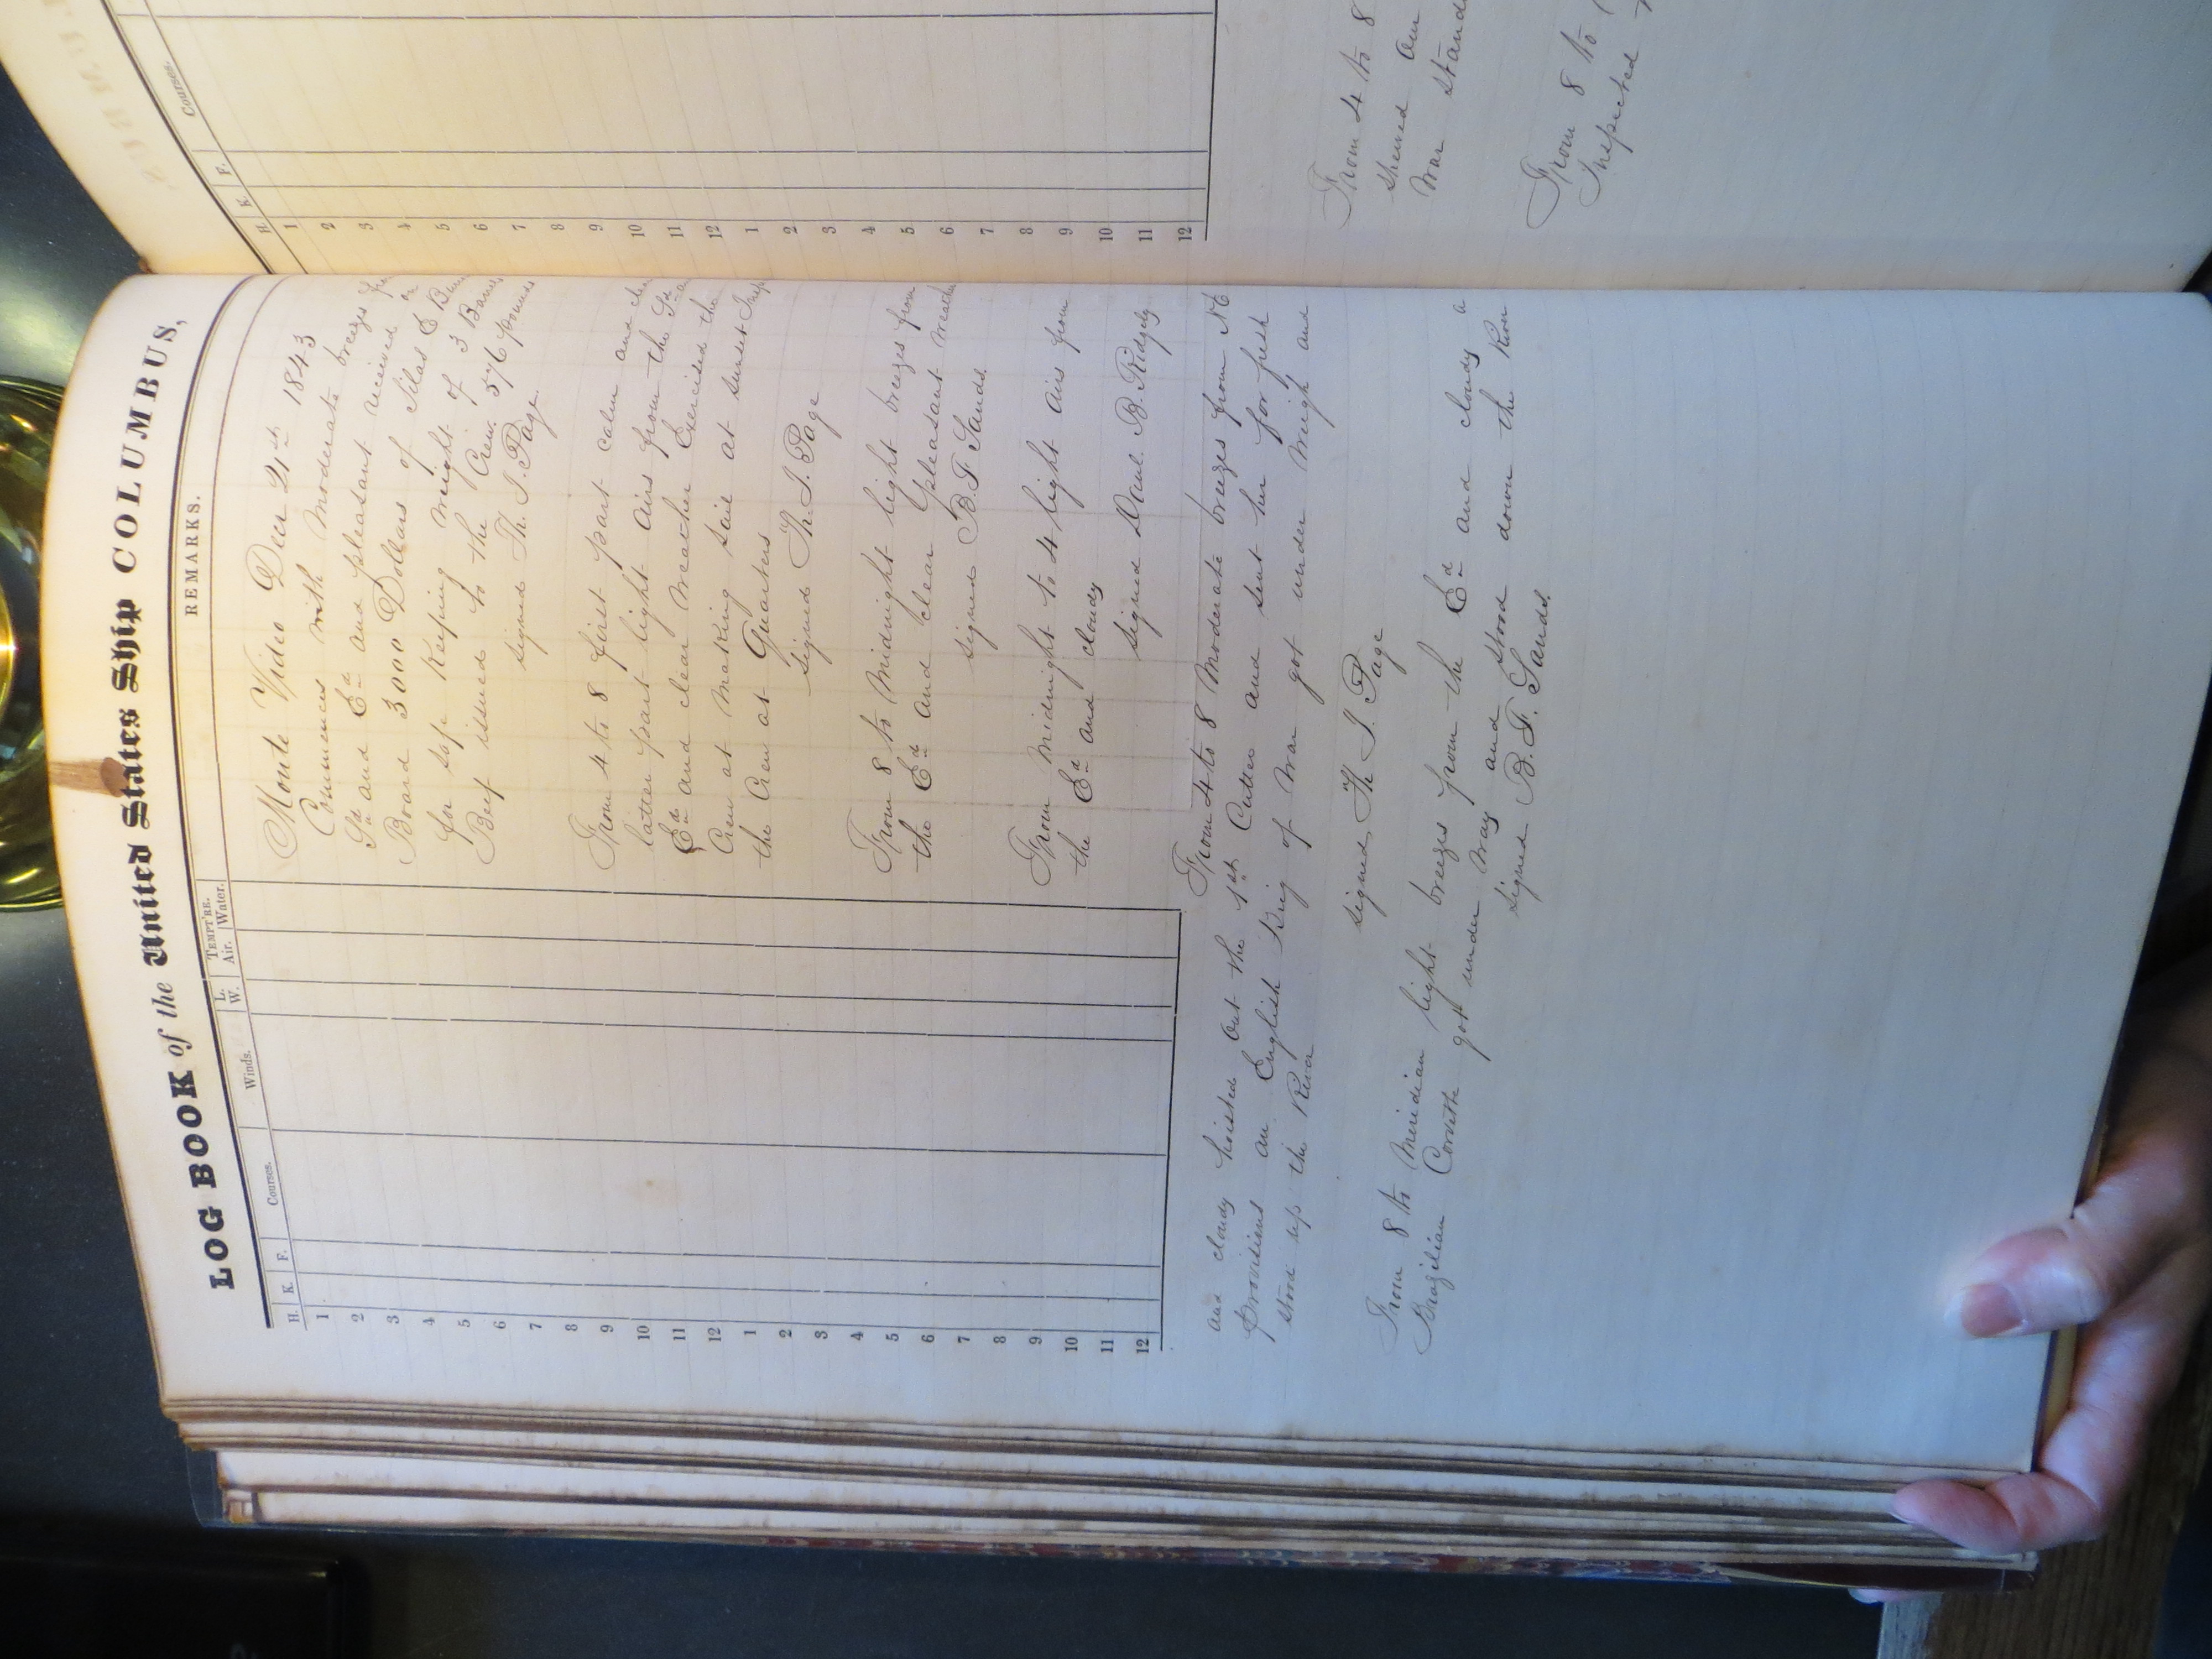 LOG BOOK of the United States Ship COLUMBUS,
H. K. F. Courses. Winds. L. W. TEMPT'RE. Air. Water. REMARKS.
1
2
3
4
5
6
7
8
9
10
11
12
1
2
3
4
5
6
7
8
9
10
11
12
Monte Video Decr 21st 1843
Commences with Moderate breezes
Sd and Ed and pleasant received on
Board 3000 Dollars of Silas E
for safe keeping weight of 3
Beef issued to the Crew 576 pounds
signed Th. J. Page
From 4 to 8 first part calm and
latter part light airs from the Sd
Ed and clear weather Exercised the
Crew at making sail at sunset
the Crew at Quarters
signed Th. J. Page
From 8 to Midnight light breezes from
the Ed and clear pleasant weather
signed B. F. Sands.
From Midnight to 4 light airs from
the Ed and cloudy
signed Danl. B. Ridgely
From 4 to 8 Moderate breezes from N E
and cloudy hoisted out the 1st Cutter and sent her for fresh
provisions an English Brig of War got under weigh and
stood up the River
signed, Th. J. Page
From 8 to Meridian light breezes from the Ed and cloudy a
Brazilian Corvette got under way and stood down the River
signed B. F. Sands.
H. K. F. Courses.
1
2
3
4
5
6
7
8
9
10
11
12
1
2
3
4
5
6
7
8
9
10
11
12
From 4 to 8
War
From 8 to
Inspected